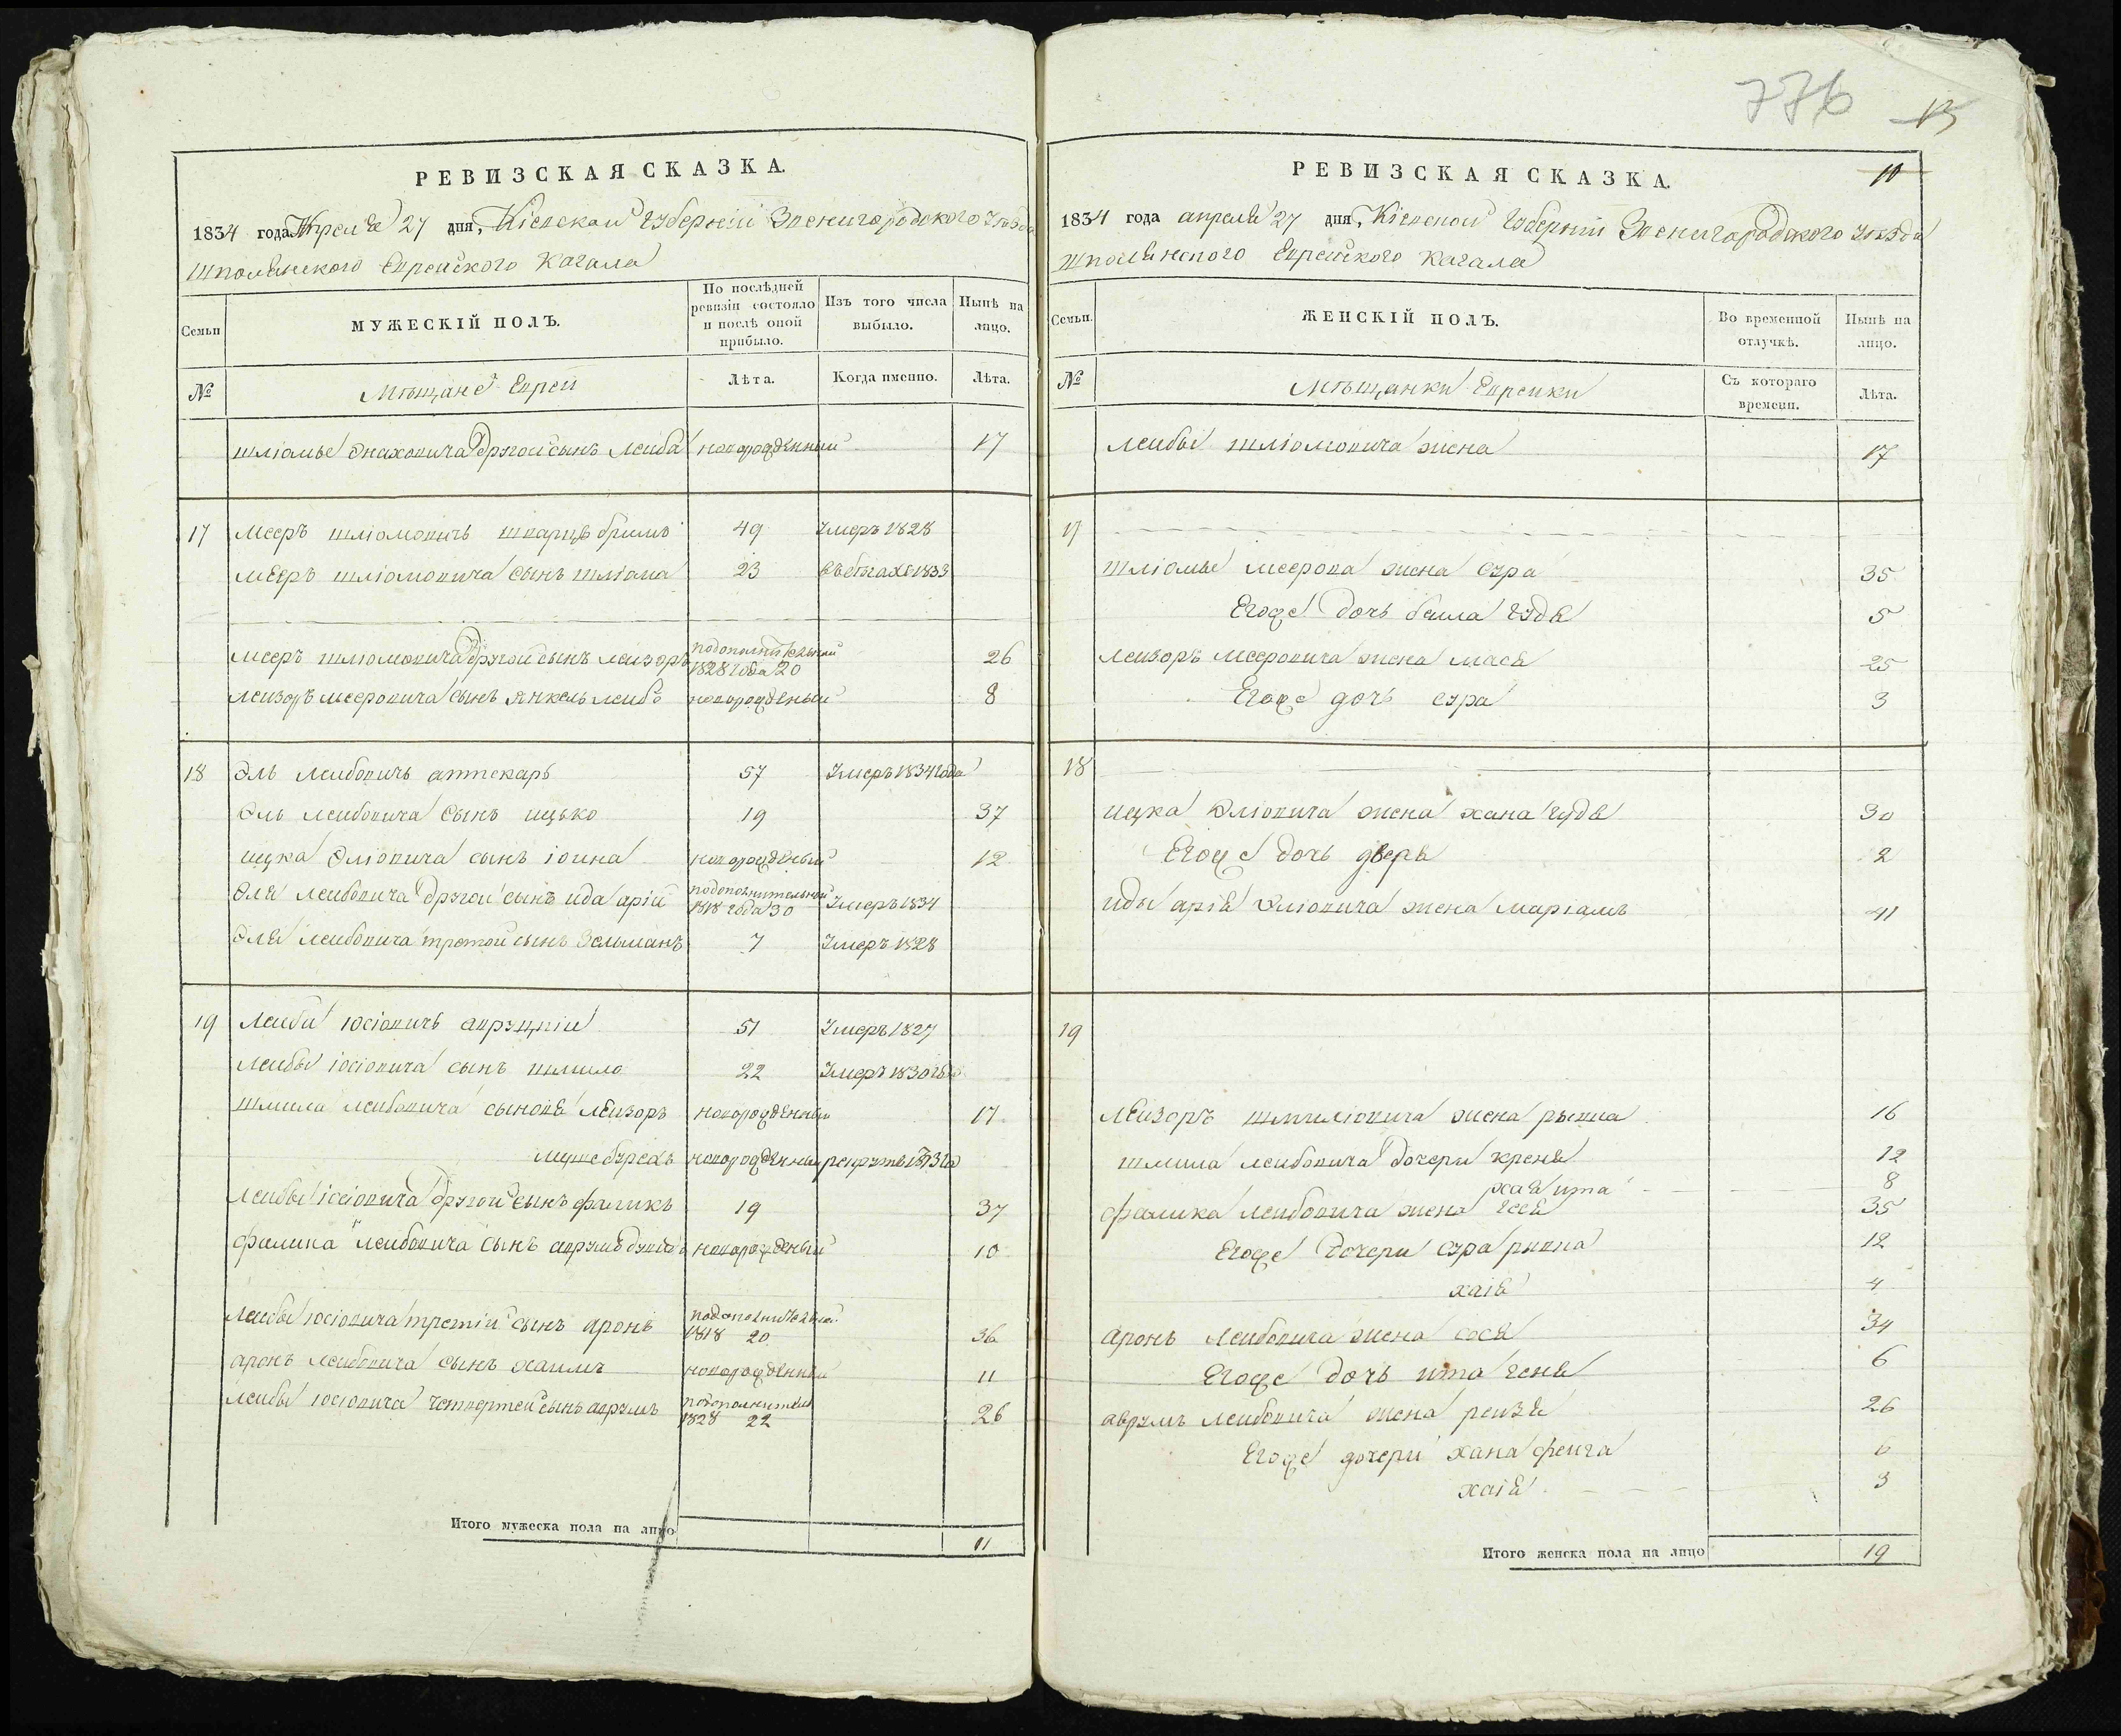 776
13
РЕВИЗСКАЯ СКАЗКА.
1834 года Апреля 27 дня, Кіевской Губерніи Звенигородского уѣзда
Шполянского Еврейского Кагала
Семьи
МУЖЕСКІЙ ПОЛЪ.
По послѣдней ревизіи состояло и послѣ оной прибыло.
Изъ того числа выбыло.
Нынѣ на лицо.
№
Мѣщане Евреи
Лѣта.
Когда именно.
Лѣта.
шліомы Энаховича другой сынъ Лейба новорожденный 17
17 Мееръ шліомовичъ 49 Умеръ 1828
Мееръ шліомовича сынъ шліома 23 въ бегахъ 1833
Мееръ шліомовича другой сынъ лейзоръ подополнительной 1828 года 20 26
лейзоръ меєровича сынъ янкель лейбъ новорожденый 8
18 Эль лейбовичъ аптекарь 57 Умеръ 1834 года
Эль лейбовича сынъ ицько 19 37
ицка Эліовича сынъ іоина новорожденый 12
Эля лейбовича другой сынъ ида арій подополнительной 1818 года 30 Умеръ 1834
Эля лейбовича третой сынъ Зельманъ 7 Умеръ 1828
19 Лейби іосіовичъ 51 Умеръ 1827
лейбы іосіовича сынъ шмило 22 Умеръ 1830 года
шмила лейбовича сыновя лейзоръ новорожденный 17
новорожденный рекрутъ
лейбы іосіовича другой сынъ фаликъ 19 37
фалика лейбовича сынъ аврумъ новорожденый 10
лейбы іосіовича третій сынъ аронъ подополнительной 1818 20 36
аронъ лейбовича сынъ хаимъ новорожденный 11
лейбы іосіовича четвертей сынъ аврумъ подополнител 1828 22 26
Итого мужеска пола на лицо 11
РЕВИЗСКАЯ СКАЗКА.
10
1834 года апреля 27 дня, Кіевской Губерніи Звенигородского уѣзда
шполянского Еврейского Кагала
Семьи.
ЖЕНСКІЙ ПОЛЪ.
Во временной отлучкѣ.
Нынѣ на лицо.
№
Мѣщанки Еврейки
Съ котораго времени.
Лѣта.
лейбы шліомовича жена 17
17
шліомы меерова жена сура 35
Егоже дочь бейла гудя 5
лейзоръ меєровича жена мася 25
Егоже дочь сура 3
18
ицка Эліовича жена хана гудя 30
Егоже дочь двера 2
иды арія Эліовича жена маріамъ 41
19
лейзоръ шмиліовича жена рывка 16
шмила лейбовича дочери креня 12
хая ита 8
фалика лейбовича жена геся 35
Егоже дочери сура ривка 12
хаія 4
аронъ лейбовича жена сося 34
Егоже дочь ита геня 6
аврумъ лейбовича жена рейзя 26
Егоже дочери хана фейга 6
хаія 3
Итого женска пола на лицо 19